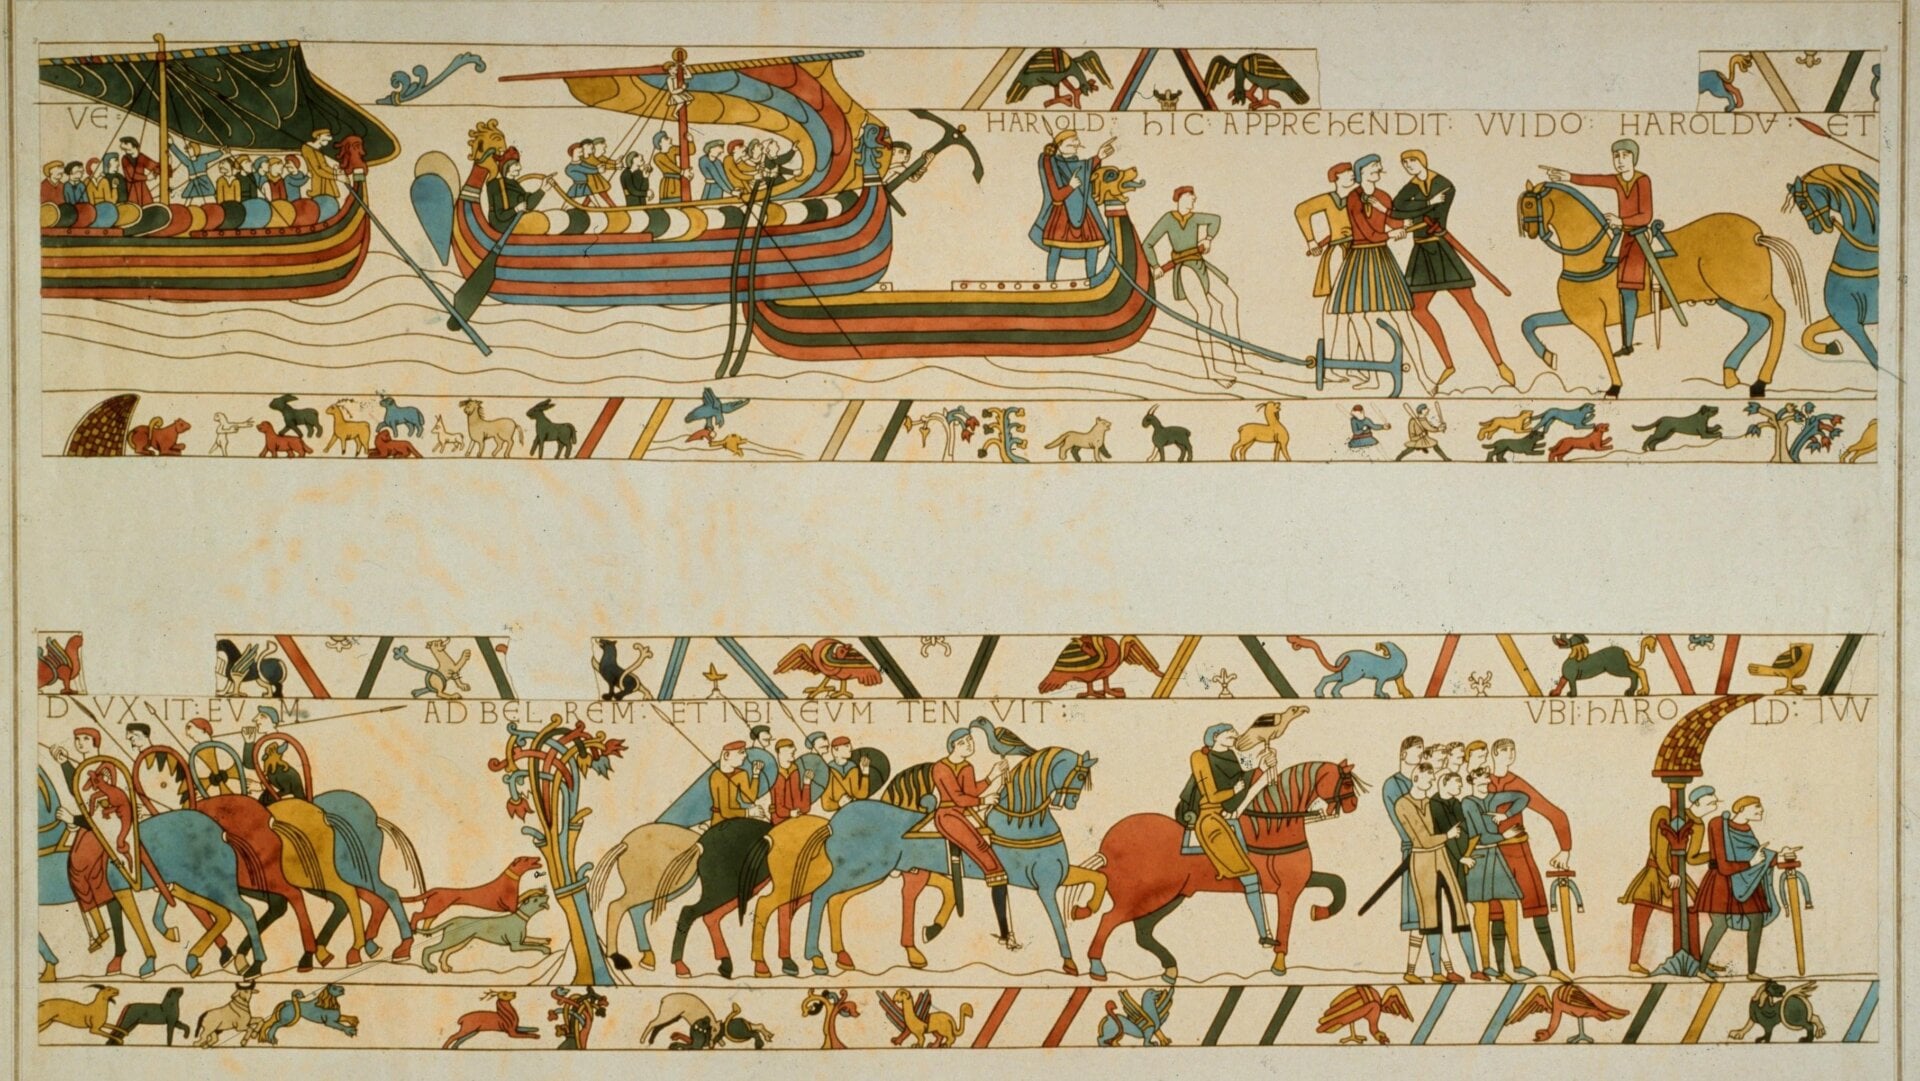 VE: HAROLD: hIC: APPREhENDIT: VVIDO: HAROLDV: ET
DVXIT: EVM AD BELREM: ET IBI EVM TENVIT: VBI: hAROLD: ⁊ VV